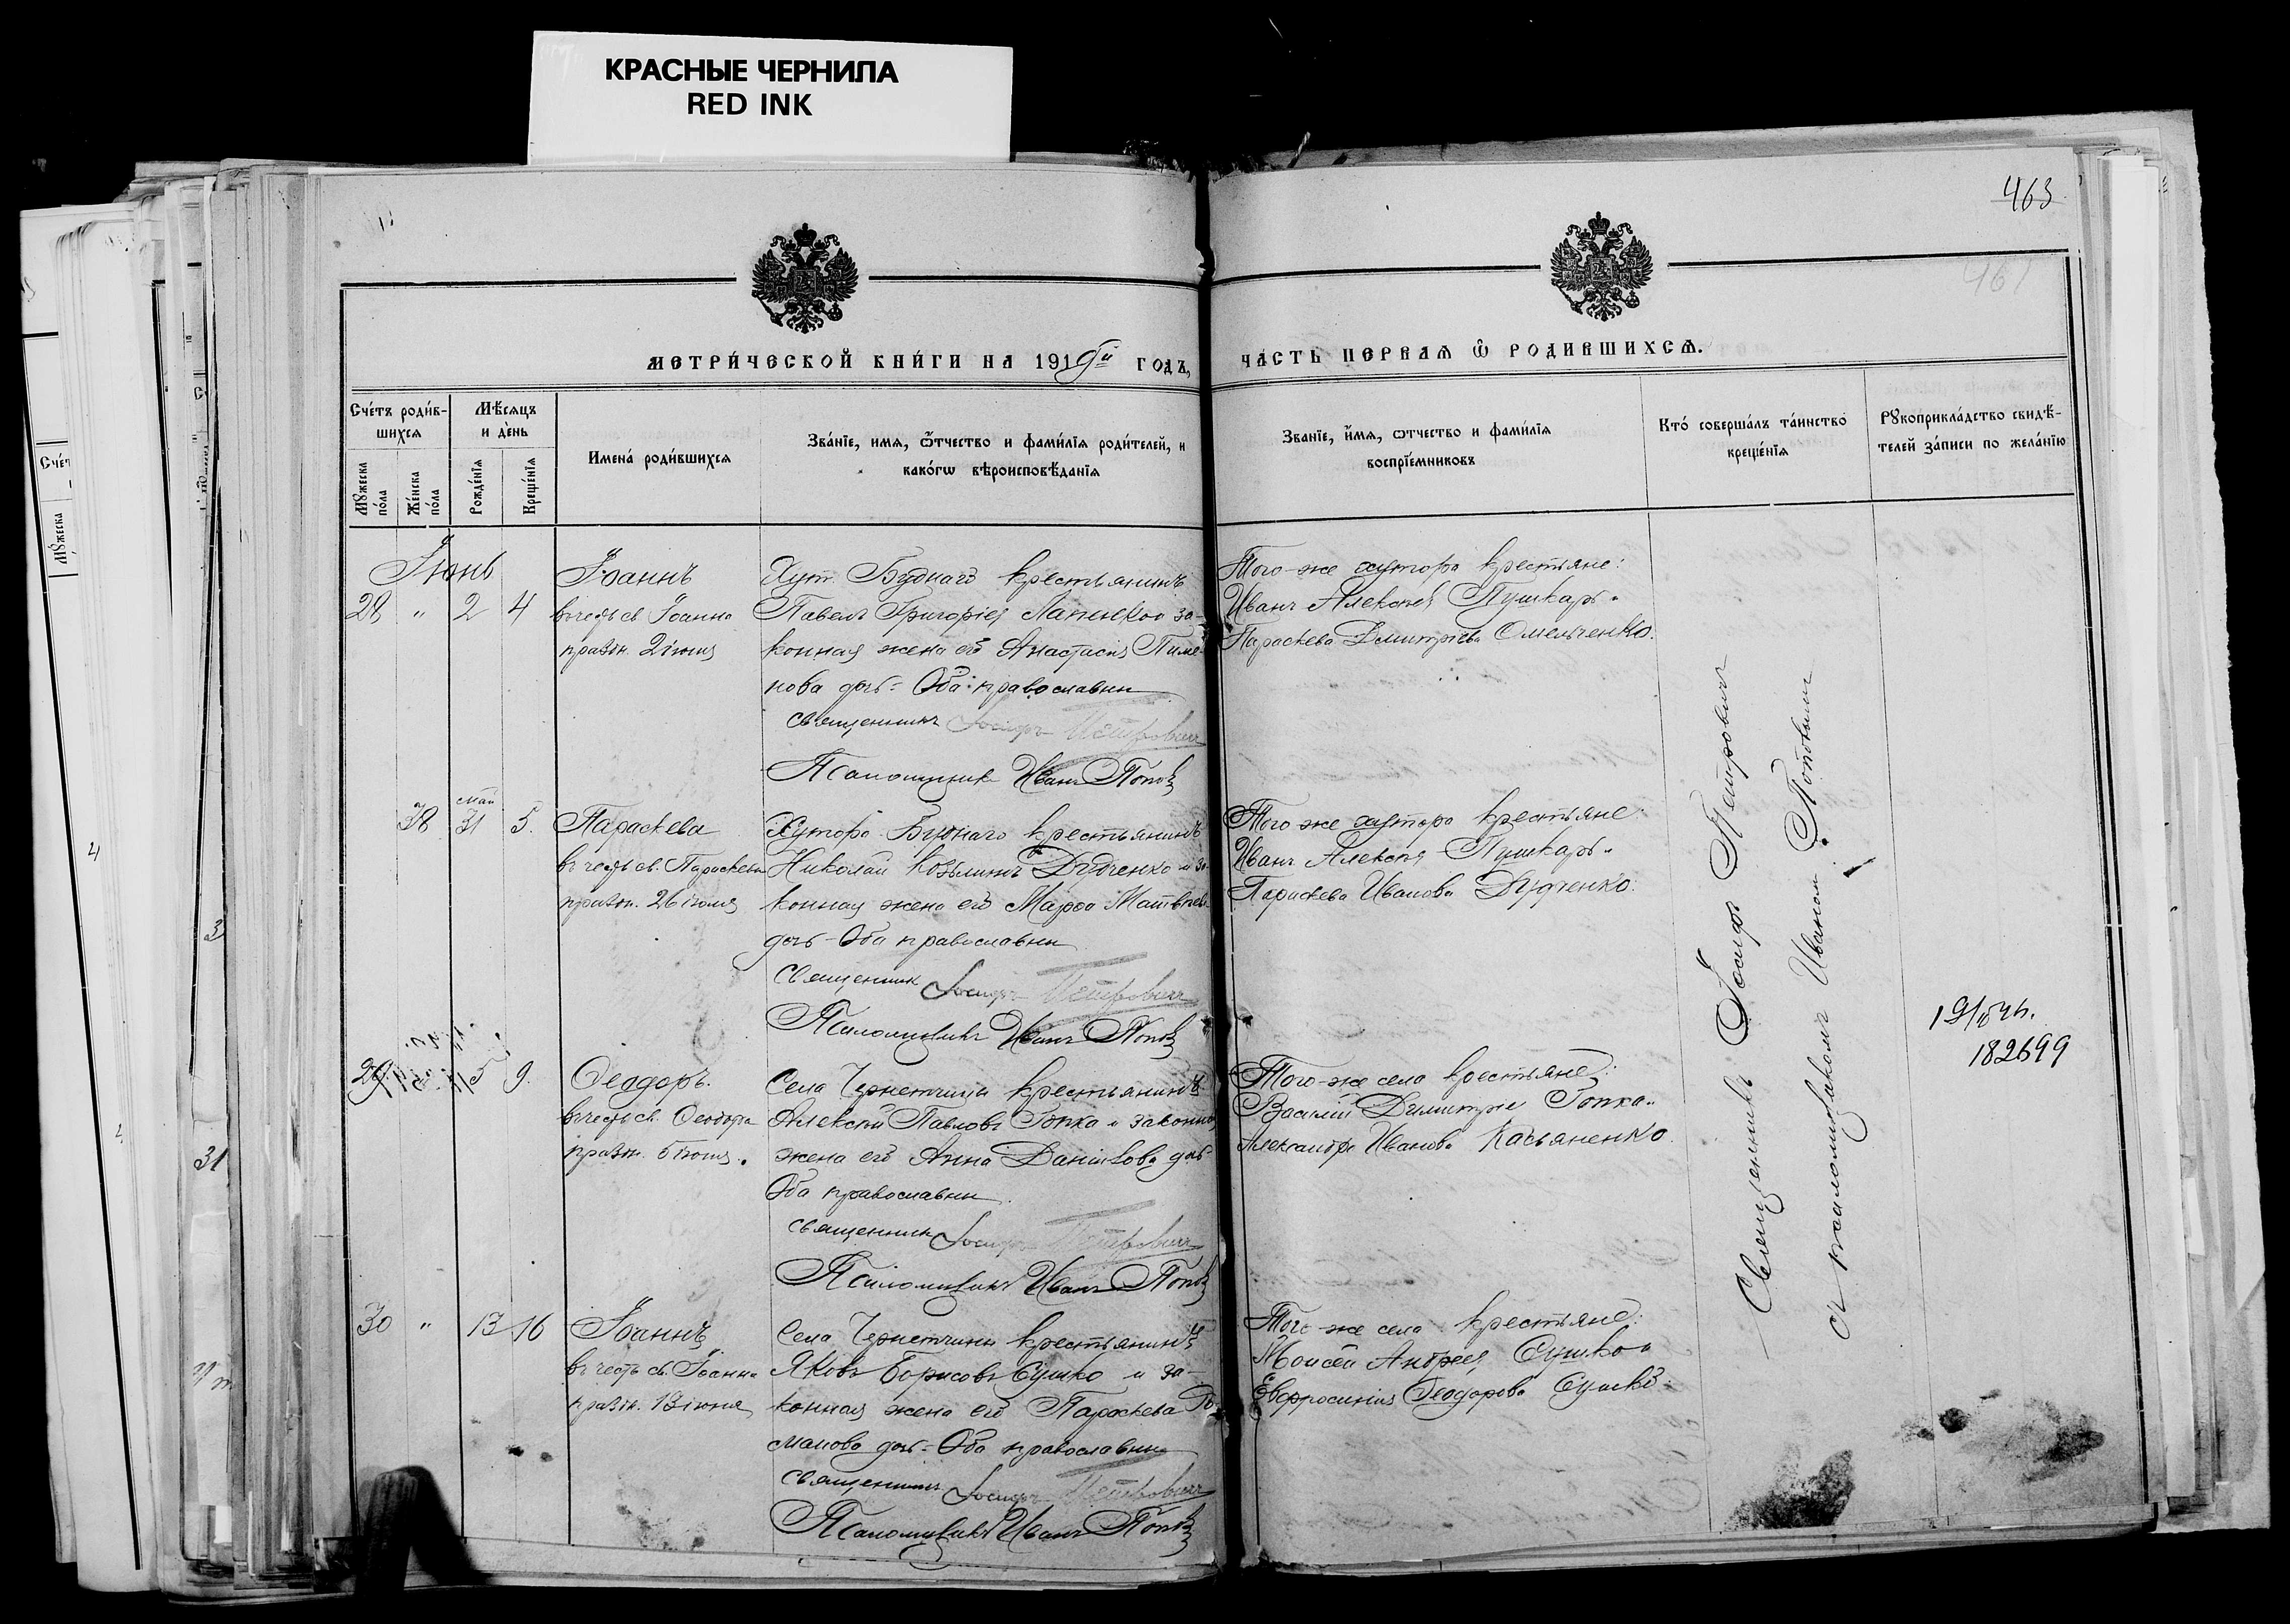 КРАСНЫЕ ЧЕРНИЛА
RED INK
463
461
МЕТРИ́ЧЕСКОЙ КНИ́ГИ НА 1919й ГОДЪ,
ЧАСТЬ ПЕРВАЯ Ѿ РОДИВШИХСЯ.
Сче́тъ роди́в-
шихся
Мꙋжеска по́ла
Же́нска по́ла
Мѣ́сяцъ
и де́нь
Рожде́нїя
Креще́нїя
Имена́ роди́вшихся
Зва́нїе, имя, ѻ҆́тчество и фами́лїя роди́телей, и
како́гѡ вѣроисповѣ́данїя
Званїе, и҆́мя, ѻтчество и фами́лїя
воспрїе́мниковъ
Кто́ соверша́лъ та́инство
креще́нїя
Рꙋкоприкла́дство свидѣ́-
телей за́писи по жела́нїю
Іюнь
28 " 2 4
Іоаннъ
въ честь св. Іоанна
празн. 2 іюня
Хут. Буднаго крестьянинъ
Павелъ Григоріев за-
конная жена его Анастасія Пиме-
нова дочь - Оба православны
священникъ Іосифъ Петровичъ
Псаломщикъ Иванъ Поповъ
Того-же хутора крестьяне:
Иванъ Алексѣев Пушкарь и
Параскева Димитріева Омельченко.
38 май 31 5.
Параскева
въ честь св. Параскевы
празн. 26 іюля
Хутора Буднаго крестьянинъ
Николай Дудченко и за-
конная жена его Марѳа Матвѣева
дочь - Оба православны
священник Іосифъ Петровичъ
Псаломщикъ Иванъ Поповъ
Того же хутора крестьяне:
Иванъ Алексѣев Пушкарь и
Параскева Иванова Дудченко.
29 5 9.
Ѳеодоръ.
въ честь св. Ѳеодора
празн. 5 іюня.
Села Чернетчины крестьянинъ
Алексѣй Павловъ Гопка и законная
жена его Анна Даніилова дочь
Оба православны
священник Іосифъ Петровичъ
Псаломщикъ Иванъ Поповъ
Того-же села крестьяне:
Василій Димитріев Гопка и
Александра Иванова Касьяненко.
30 " 13 16
Іоаннъ
въ честь св. Іоанна
празн. 13 іюня
Села Чернетчины крестьянинъ
Яковъ Борисовъ Сушко и за-
конная жена его Параскева Ро-
манова дочь - Оба православны
священникъ Іосифъ Петровичъ
Псаломщикъ Иванъ Поповъ
Того же села крестьяне:
Моисей Андреев Сушко и
Евфросинія Ѳеодорова Сушко.
Священникъ Іосифъ Петровичъ
съ псаломщикомъ Иваномъ Поповымъ
182699